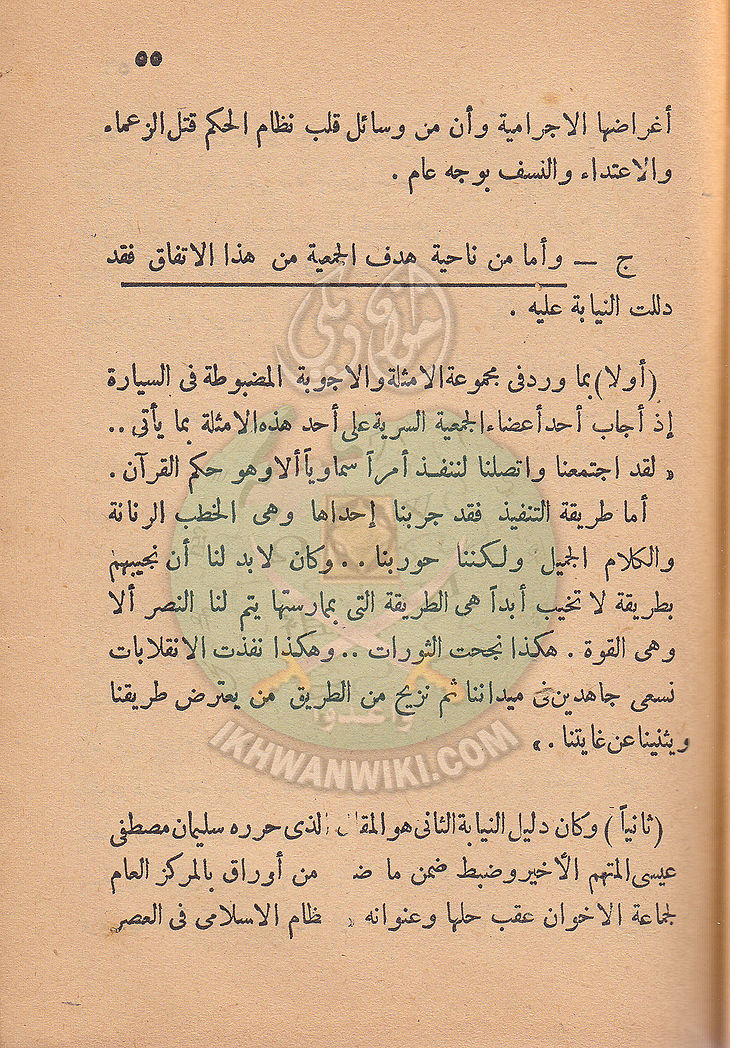 ٥٥
أغراضها الاجرامية وأن من وسائل قلب نظام الحكم قتل الزعماء
والاعتداء والنسف بوجه عام .
ج — وأما من ناحية هدف الجمعية من هذا الاتفاق فقد
دللت النيابة عليه .
(أولا) بما ورد فى مجموعة الامثلة والاجوبة المضبوطة فى السيارة
إذ أجاب أحد أعضاء الجمعية السرية على أحد هذه الامثلة بما يأتى ..
« لقد اجتمعنا واتصلنا لننفـذ أمراً سماوياً ألا وهو حكم القرآن .
أما طريقة التنفيذ فقد جربنا إحداها وهى الخطب الرنانة
والكلام الجميل ولكننا حوربنا .. وكان لابد لنا أن نجيبهم
بطريقة لا تخيب أبداً هى الطريقة التى بممارستها يتم لنا النصر ألا
وهى القوة . هكذا نجحت الثورات .. وهكذا نفذت الانقلابات
نسعى جاهدين فى ميداننا ثم نزيح من الطريق من يعترض طريقنا
ويثنينا عن غايتنا . »
(ثانياً) وكان دليل النيابة الثانى هو المقال الذى حرره سليمان مصطفى
عيسى المتهم الأخير وضبط ضمن ما ضـ من أوراق بالمركز العام
لجماعة الاخوان عقب حلها وعنوانه « ـظام الاسلامى فى العصر
اخوان ويكي
وأعدوا
IKHWANWIKI.COM